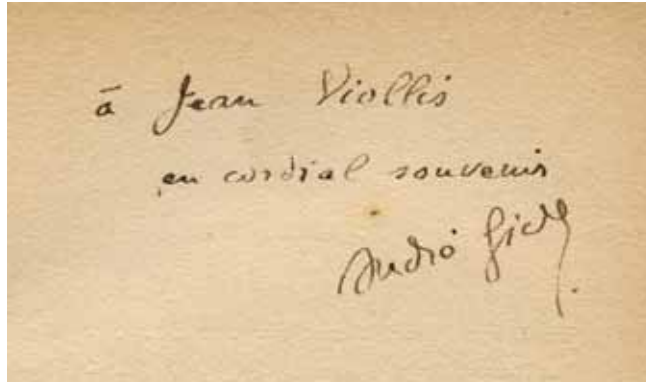 à Jean Viollis
en cordial souvenir
André Gide